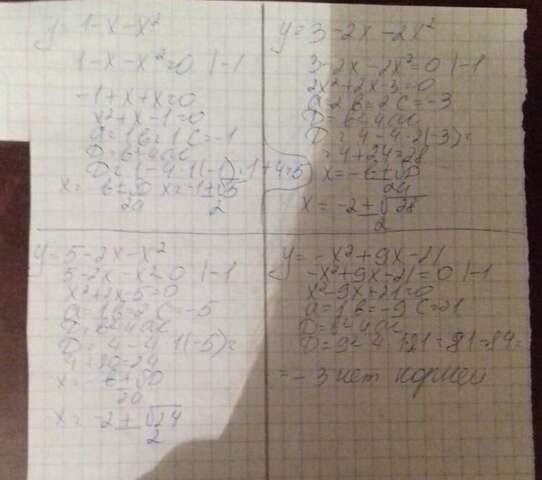 y=1-x-x²
1-x-x²=0 |-1
-1+x+x=0
x²+x-1=0
a=1 b=1 c=-1
D=b-4ac
D=1-4·1(-1)=1+4=5
x= -b±√D x=-1±√5
2a 2
y=3-2x-2x²
3-2x-2x²=0 |-1
2x²+2x-3=0
a=2 b=2 c=-3
D=b-4ac
D=4-4·2(-3)=
=4+24=28
x=-b±√D
2a
x=-2±√28
2
y=5-2x-x²
5-2x-x²=0 |-1
x²+2x-5=0
a=1 b=2 c=-5
D=b-4ac
D=4-4·1(-5)=
4+20=24
x=-b±√D
2a
x=-2±√24
2
y=-x²+9x-21
-x²+9x-21=0 |-1
x²-9x+21=0
a=1 b=-9 c=21
D=b-4ac
D=9²-4·1·21=81-84=
=-3 нет корней